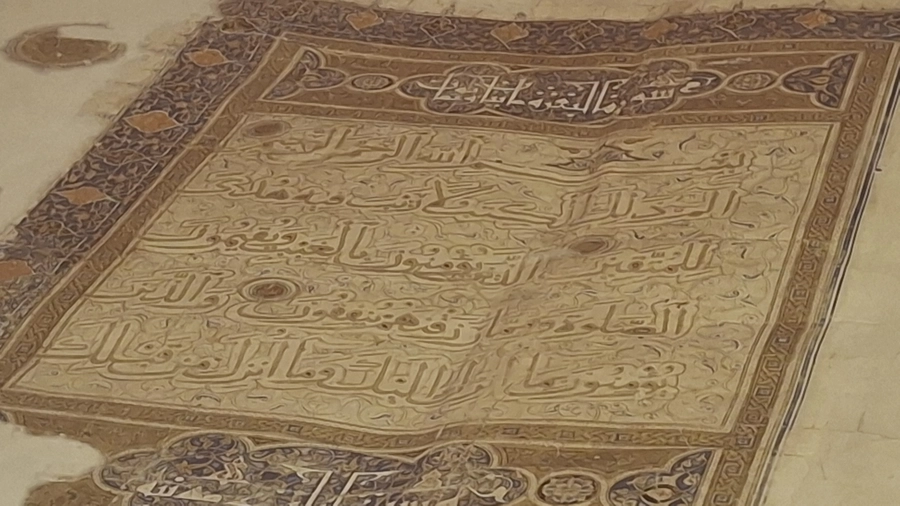 سورة البقرة
بسم الله الرحمن الرحيم
الم ذلك الكتاب لا ريب فيه هدى
للمتقين الذين يؤمنون بالغيب ويقيمون
الصلوة ومما رزقنهم ينفقون والذين
يؤمنون بما انزل اليك وما انزل من قبلك